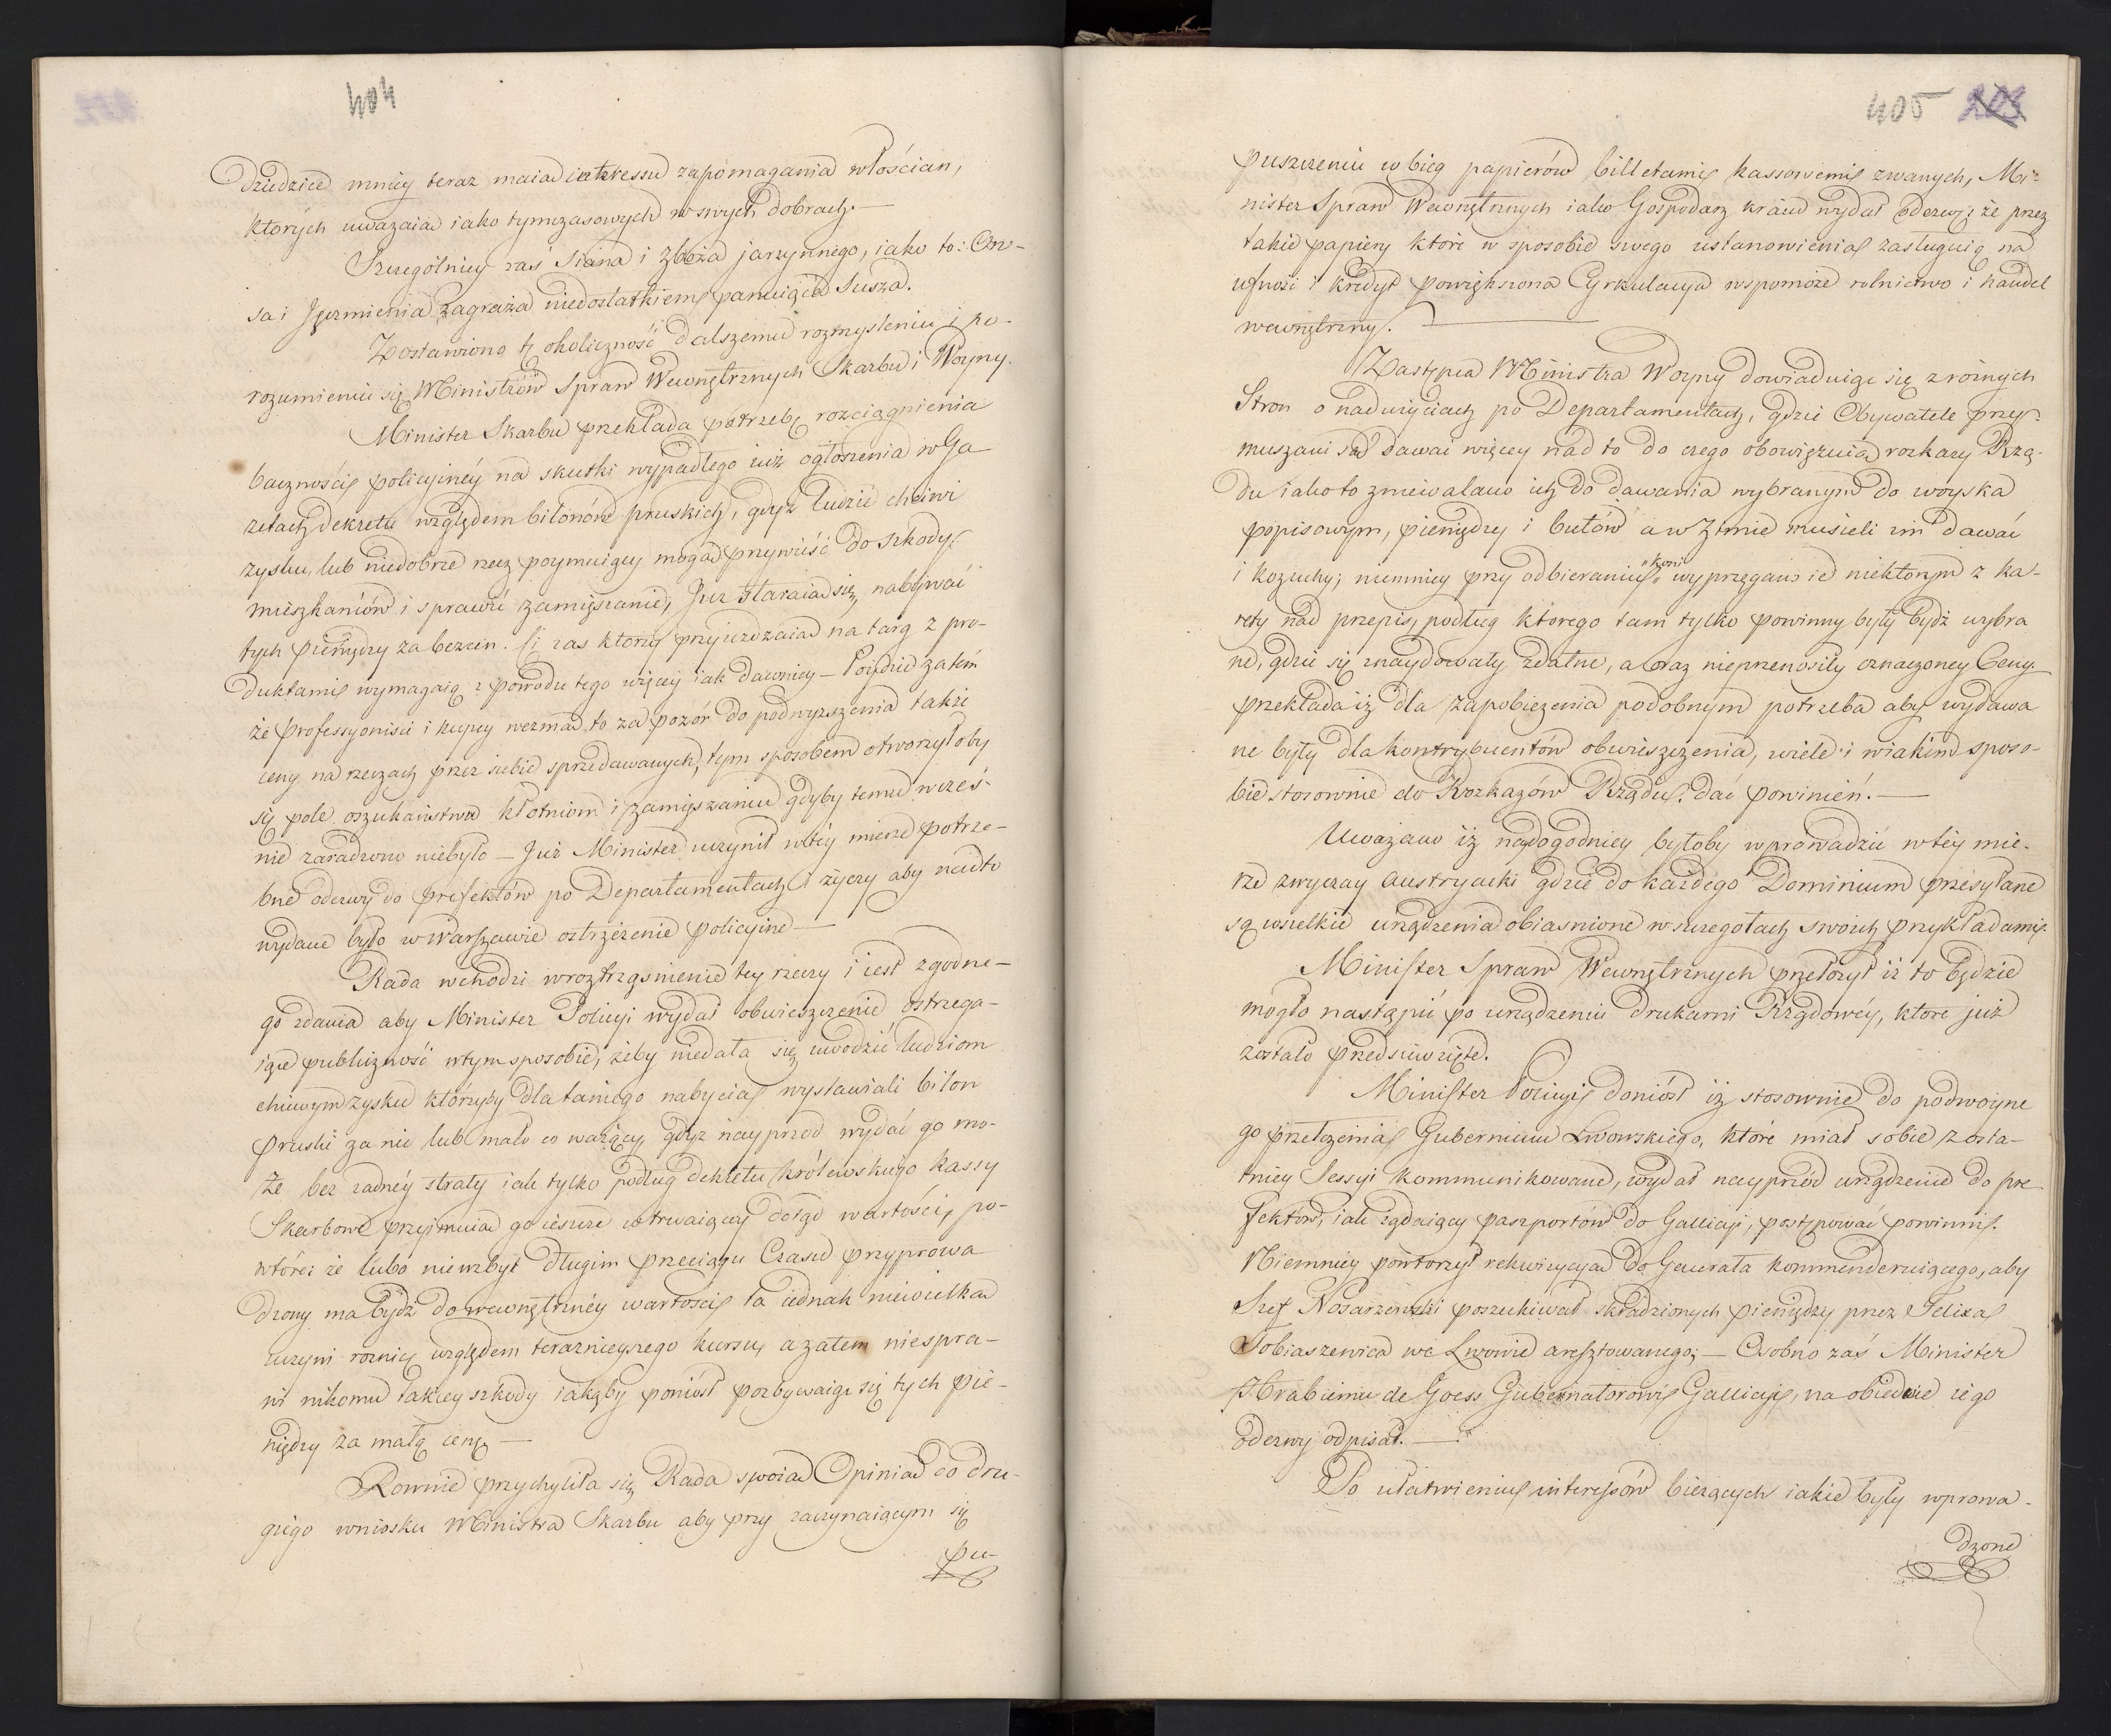 404
Dziedzice mniey teraz maią interessu zapomagania włościan,
ktorych uwazaią iako tymczasowych w swych dobrach. —
Szczegolniey zaś Siana i Zboża jarzynnego, iako to: Ow-
sa i Jęczmienia zagraża niedostatkiem panuiąca Susza.
Zostawiono tę okoliczność dalszemu rozmysleniu i po-
rozumieniu się Ministrów Spraw Wewnętrznych Skarbu i Woyny.
Minister Skarbu przekłada potrzebę rozciągnienia
baczności policyiney na skutki wypadłego iuż ogłoszenia w Ga
zetach dekretu względem bilonów pruskich, gdyż ludzie chciwi
zysku, lub niedobrze rzecz poymuiący mogą przywieść do szkody
mieszkańców i sprawić zamięszanie, Juz staraią się nabywać
tych pieniędzy za bezcen. Ci zas ktorzy przyiezdzaią na targ z pro-
duktami wymagaią z powodu tego więcey iak dawniey — Poidzie zatem
że professyonisci i kupcy wezmą to za pozór do podwyzszenia takze
ceny na rzeczach przez siebie sprzedawanych, tym sposobem otworzyłoby
się pole oszukaństwu kłotniom i zamięszaniu gdyby temu wcześ-
nie zaradzono niebyło — Już Minister uczynił w tey mierze potrze-
bne odezwy do prefektów po Departamentach i życzy aby nadto
wydane było w Warszawie ostrzeżenie policyine —
Rada wchodzi w roztrząsnienie tey rzeczy i iest zgodne-
go zdania aby Minister Policyi wydał obwieszczenie ostrzega-
iące publiczność w tym sposobie, żeby niedała się uwodzić ludziom
chciwym zysku którzyby dla taniego nabycia wystawiali bilon
pruski za nic lub mało co ważący, gdyż nayprzod wydać go mo-
że bez zadnéy straty iak tylko podług dekretu królewskiego kassy
Skarbowe przyimuią go ieszcze w trwaiącey dotąd wartości, po-
wtóre: że lubo niezbyt długim przeciągu Czasu przyprowa
dzony ma bydź do wewnętrznéy wartości ta iednak niewielką
uczyni roznicę względem teraznieyszego kursu, a zatem niespra-
wi nikomu takiey szkody iakąby poniósł pozbywaiąc się tych pie-
niędzy za małą cenę —
Rownie przychyliła się Rada swoią Opinią do dru-
giego wniosku Ministra Skarbu aby przy zaczynaiącym się
pu-
405 203
puszczeniu w bieg papierów billetami kassowemi zwanych, Mi-
nister Spraw Wewnętrznych iako Gospodarz kraiu wydał odezwę że przez
takie papiery które w sposobie swego ustanowienia zasługuią na
ufność i kredyt powiększona Cyrkulacya wspomoże rolnictwo i handel
wewnętrzny. —
Zastępca Ministra Woyny dowiaduiąc się z roznych
Stron o nadużyciach po Departamentach, gdzie Obywatele przy-
muszani są dawać więcey nad to do czego obowięzuią rozkazy Rzą-
du iako to zniewalano ich do dawania wybranym do woyska
popisowym, pieniędzy i butów a w Zimie musieli im dawać
i kozuchy; niemniey przy odbieraniu "koni" wyprzęgano ie niektorym z ka-
rety nad przepis, podług ktorego tam tylko powinny były bydź wybra
ne, gdzie się znaydowały zdatne, a oraz nieprzenosiły oznaczoney Ceny.
przekłada iż dla zapobieżenia podobnym potrzeba aby wydawa
ne były dla kontrybuentów obwieszczenia, wiele i wiakim sposo-
bie stosownie do Rozkazów Rządu dać powinien. —
Uważano iż naydogodniey byłoby wprowadzić w téy mie-
rze zwyczay austryacki gdzie do każdego Dominium przesyłane
są wszelkie urządzenia obiasnione w szczegołach swoich przykładami.
Minister Spraw Wewnętrznych przełozył iż to będzie
mogło nastąpić po urządzeniu drukarni Rządowéy, ktore już
zostało przedsięwzięte.
Minister Policyi doniósł iż stosownie do podwoyne
go przełożenia Gubernium Lwowskiego, które miał sobie z osta-
tniey Sessyi kommunikowane, wydał nayprzód urządzenie do pre
fektów, iak żądaiący paszportów do Gallicyi, postępować powinni.
Niemniey powtorzył rekwizycyą do Generała kommenderuiącego, aby
Szef Nosarzewski poszukiwał skradzionych pieniędzy przez Felixa
Tobiaszewicza we Lwowie aresztowanego; — Osobno zaś Minister
Hrabiemu de Goess Gubernatorowi Gallicyi, na obiedwie iego
odezwy odpisał. —
Po ułatwieniu interessów bieżących iakie były wprowa-
dzone